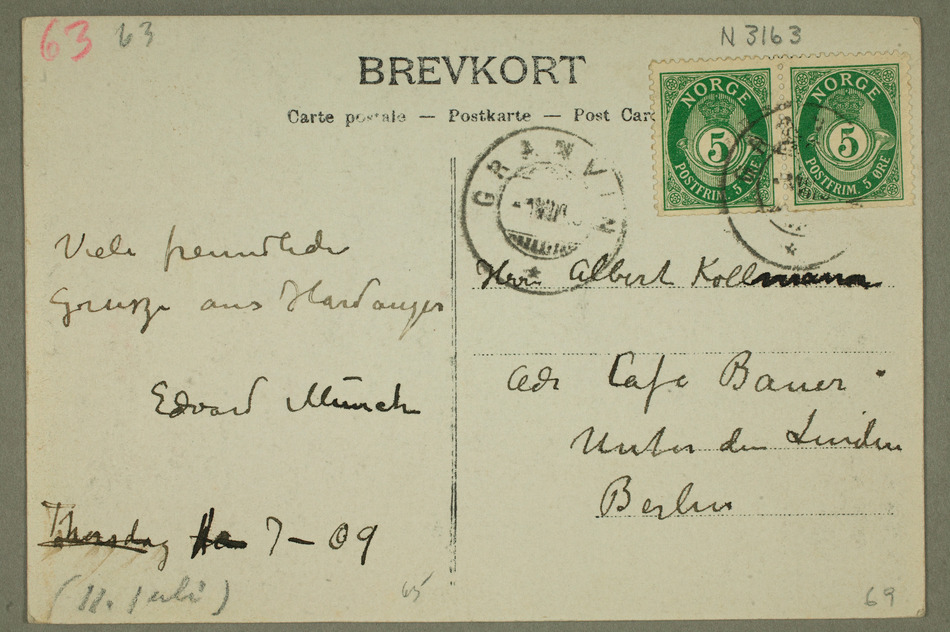 63 63
N 3163
BREVKORT
Carte postale — Postkarte — Post Card
NORGE
5
POSTFRIM. 5 ØRE
NORGE
5
POSTFRIM. 5 ØRE
GRANVIN
Viele freundliche
Grusze aus Hardanger
Edvard Munch
Thorsday 7 – 09
(11. Juli)
65
Herrn Albert Kollmann
adr Cafe Bauer
Unter den Linden
Berlin
69